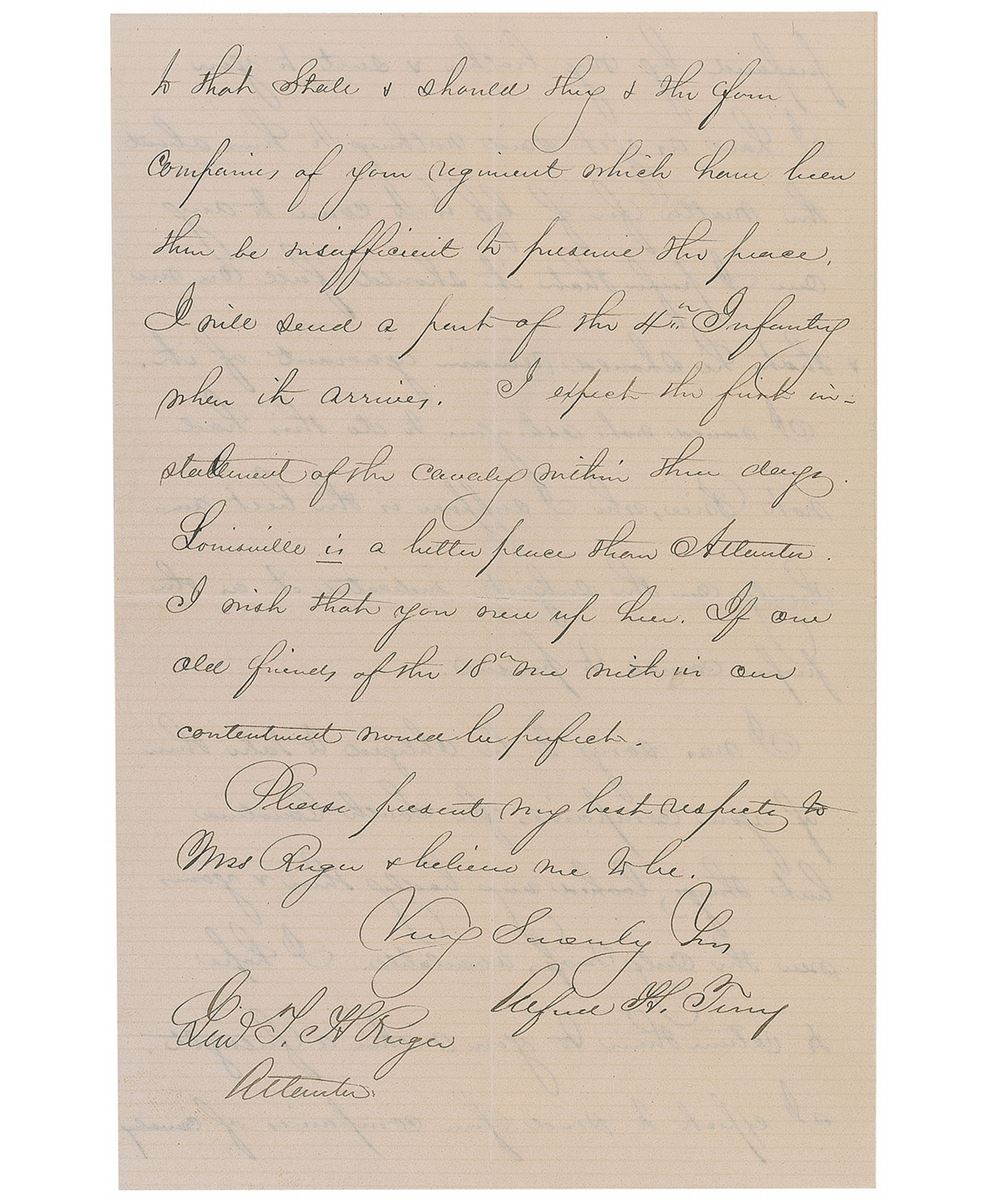 to that State & should they & the four
companies of your regiment which have been
there be insufficient to preserve the peace,
I will send a part of the 4th Infantry
when it arrives. I expect the first in-
stallment of the cavalry within three days.
Louisville is a better place than Atlanta.
I wish that you were up here. If our
old friends of the 18th were with us our
contentment would be perfect.
Please present my best respects to
Mrs Ruger & believe me to be.
Very Sincerely Yrs
Alfred H. Terry
Genl T. H Ruger
Atlanta